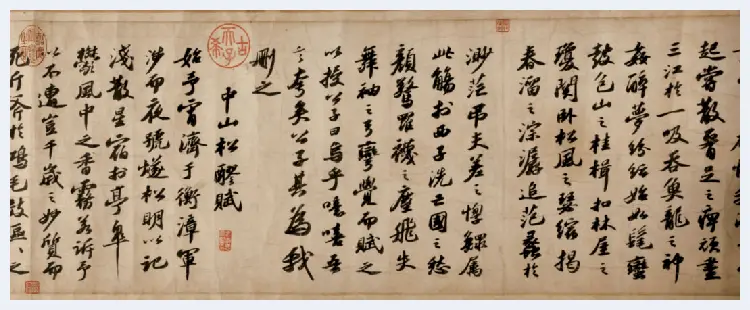 起嘗散腰足之痹頑盡
三江於一吸吞魚龍之神
姦醉夢紛紜始如髦蠻
鼓包山之桂楫扣林屋之
瓊關臥松風之瑟縮揭
春溜之淙潺追范蠡於
渺茫吊夫差之惸鰥屬
此觴於西子洗亡國之愁
顏驚羅襪之塵飛失
舞袖之弓彎覺而賦之
以授公子曰烏乎噫嘻吾
言夸矣公子其為我
刪之
中山松醪賦
始予宵濟于衡漳軍
涉而夜號燧松明以記
淺散星宿於亭皋
鬱風中之香霧若訴予
以不遭豈千歲之妙質而
死斤斧於鴻毛效區區之
古希天子